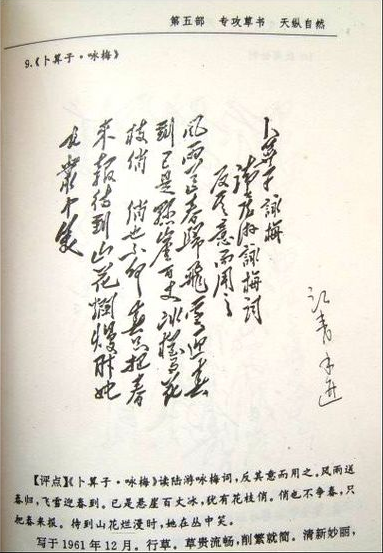 第五部　专攻草书　天纵自然
9.《卜算子·咏梅》
江青
卜算子 詠梅
讀陸游詠梅詞
反其意而用之
風雨送春歸飛雪迎春
到已是懸崖百丈冰猶有花
枝俏 俏也不争 春只把春
來報待到山花爛熳時她
在叢中笑
【评点】《卜算子·咏梅》读陆游咏梅词，反其意而用之。风雨送
春归，飞雪迎春到。已是悬崖百丈冰，犹有花枝俏。俏也不争春，只
把春来报。待到山花烂漫时，她在丛中笑。
写于1961年12月。行草。草贵流畅，削繁就简。清新妙丽，